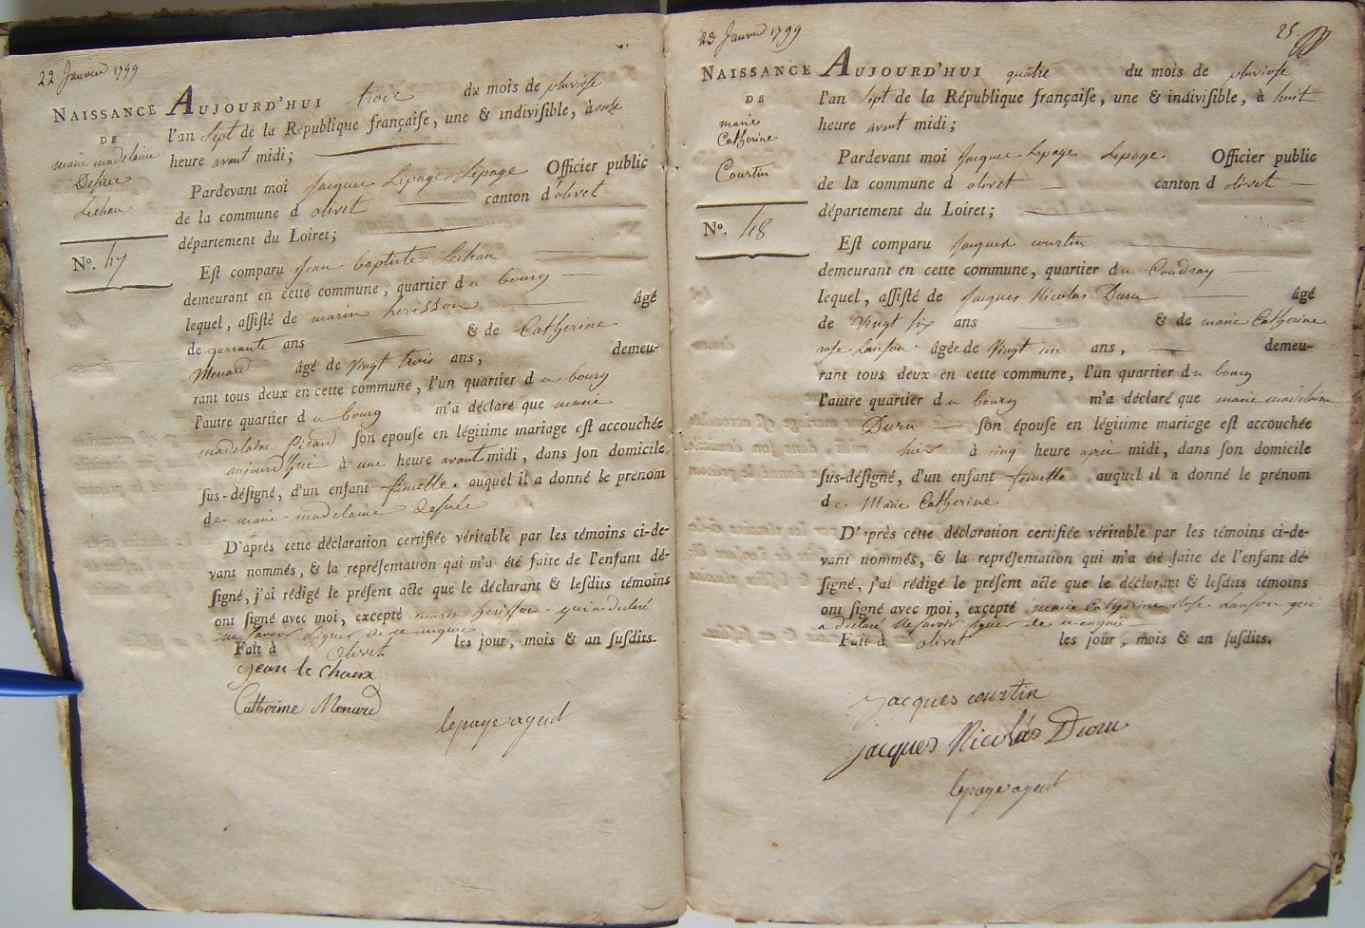 22 Janvier 1799
NAISSANCE
DE
marie madelaine
Desirée
Lechau
N°. 47
AUJOURD'HUI trois du mois de pluviose
l'an sept de la République françaiſe, une & indiviſible, à onze
heure avant midi;
Pardevant moi Jacques Lepage Lepage Officier public
de la commune d olivet canton d'olivet
département du Loiret;
Eſt comparu Jean baptiste Lechau
demeurant en cette commune, quartier du bourg
lequel, aſſiſté de marin herisson âgé
de quarante ans & de Catherine
Menard âgé de vingt trois ans, demeu-
rant tous deux en cette commune, l'un quartier du bourg
l'autre quartier du bourg m'a déclaré que marie
madelaine Picard ſon épouse en légitime mariage eſt accouchée
aujourd'hui à une heure avant midi, dans ſon domicile
ſus-déſigné, d'un enfant femelle. auquel il a donné le prénom
de marie madelaine
D'après cette déclaration certifiée véritable par les témoins ci-de-
vant nommés, & la repréſentation qui m'a été faite de l'enfant dé-
ſigné, j'ai rédigé le préſent acte que le déclarant & leſdits témoins
ont ſigné avec moi, excepté marin herisson qui a déclaré
ne savoir signer de ce enquis
Fait à Olivet les jour, mois & an ſuſdits.
Jean le chaux
Catherine Menard
lepage agent
23 Janvier 1799
25.
NAISSANCE
DE
marie
Catherine
Courtin
N°. 48
AUJOURD'HUI quatre du mois de pluviose
l'an sept de la République françaiſe, une & indiviſible, à huit
heure avant midi;
Pardevant moi Jacques Lepage Lepage Officier public
de la commune d olivet canton d olivet
département du Loiret;
Eſt comparu Jacques courtin
demeurant en cette commune, quartier du Coudray
lequel, aſſiſté de Jacques Nicolas Duru âgé
de vingt six ans & de marie Catherine
rose Lanson âgée de vingt un ans, demeu-
rant tous deux en cette commune, l'un quartier du bourg
l'autre quartier du bourg m'a déclaré que marie madelaine
Duru ſon épouse en légitime mariage eſt accouchée
hier à cinq heure après midi, dans ſon domicile
ſus-déſigné, d'un enfant femelle auquel il a donné le prénom
de Marie Catherine
D'après cette déclaration certifiée véritable par les témoins ci-de-
vant nommés, & la repréſentation qui m'a été faite de l'enfant dé-
ſigné, j'ai rédigé le préſent acte que le déclarant & leſdits témoins
ont ſigné avec moi, excepté marie Catherine Rose Lanson qui
a déclaré ne savoir signer de ce enquis
Fait à olivet les jour, mois & an ſuſdits.
jacques courtin
jacques Nicolas Duru
lepage agent